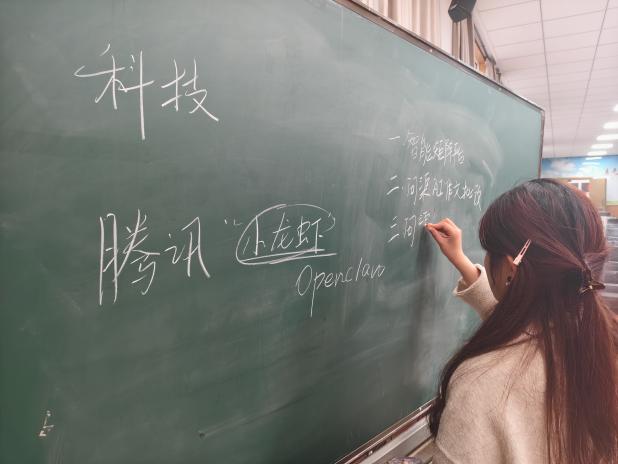 科技
腾讯 "小龙虾"
Openclaw
一.智能
二.问渠AI作文批改
三.问渠